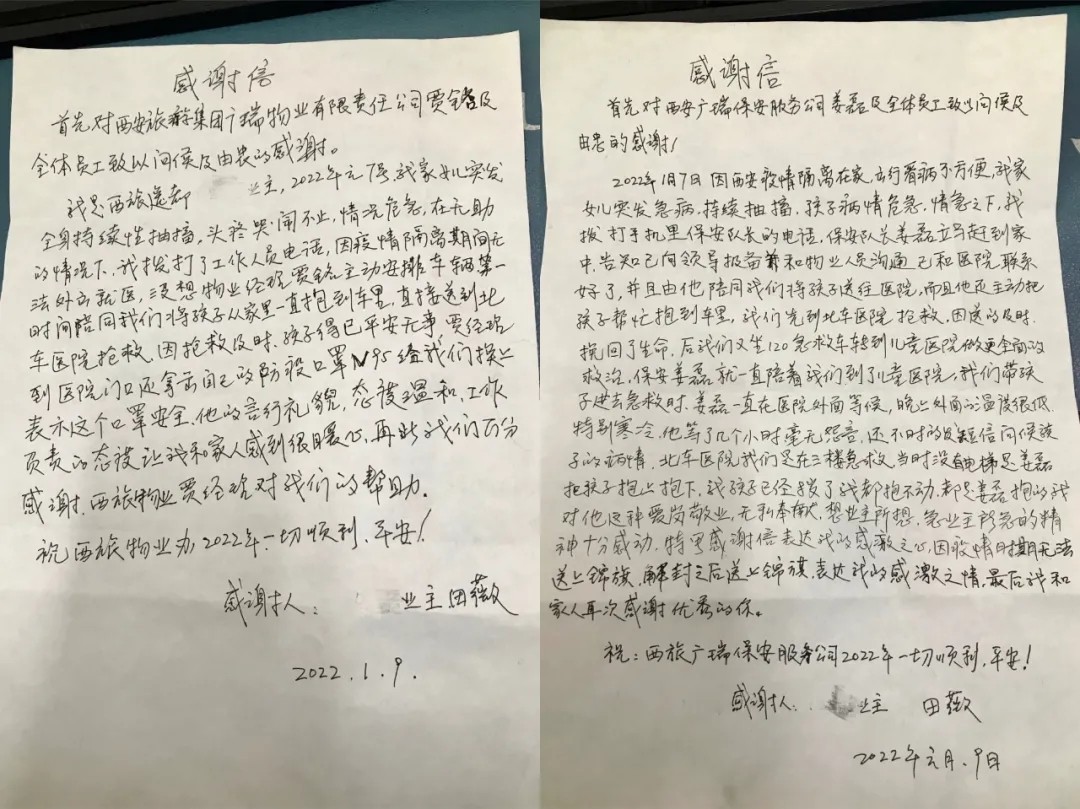 感谢信
首先,对西安旅游集团广瑞物业有限责任公司贾 及
全体员工致以问侯及由衷的感谢。
我是西旅逸都 业主,2022年元7号,我家女儿突发
全身持续性抽搐,头疼哭闹不止,情况危急,在无助
的情况下,我拨打了工作人员电话,因疫情隔离期间无
法外出就医,没想物业经理贾 主动安排车辆第一
时间陪同我们将孩子从家里一直抱到车里,直接送到北
车医院抢救,因抢救及时,孩子得已平安无事,贾经理
到医院门口还拿出自己的防疫口罩N95给我们换上
表示这个口罩安全,他的言行礼貌,态度温和,工作
负责的态度让我和家人感到很暖心,再此我们万分
感谢,西旅物业贾经理对我们的帮助。
祝西旅物业办2022年一切顺利,平安!
感谢人: 业主田薇
2022.1.9.
感谢信
首先,对西安广瑞保安服务公司姜磊及全体员工致以问侯及
由衷的感谢!
2022年1月7日因西安疫情隔离在家,出行看病不方便,我家
女儿突发急病,持续抽搐,孩子病情危急,情急之下,我
拨打手机里保安队长的电话,保安队长姜磊立马赶到家
中,告知已向领导报备并和物业人员沟通已和医院联系
好了,并且由他陪同我们将孩子送往医院,而且他还主动把
孩子帮忙抱到车里,我们先到北车医院抢救,因送的及时,
挽回了生命,后我们又坐120急救车转到儿童医院做更全面的
救治,保安姜磊就一直陪着我们到了儿童医院,我们带孩
子进去急救时,姜磊一直在医院外面等候,晚上外面的温度很低
特别寒冷,他等了几个小时毫无怨言,还不时的发短信问候孩
子的病情,北车医院我们是在三楼急救,当时没有电梯是姜磊
把孩子抱上抱下,我孩子已经8岁了我都抱不动,都是姜磊抱的我
对他这种爱岗敬业,无私奉献,想业主所想,急业主所急的精
神十分感动,特写感谢信表达我的感激之心,因疫情时期无法
送上锦旗,解封之后送上锦旗,表达我的感激之情,最后我和
家人再次感谢优秀的你。
祝:西旅广瑞保安服务公司2022年一切顺利,平安!
感谢人: 业主 田薇
2022年元月.9日